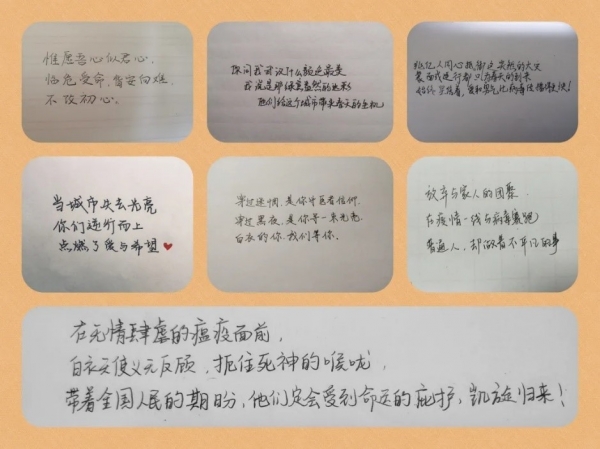 惟愿吾心似君心,
临危受命,皆安向难,
不改初心。
你问我武汉什么颜色最美
我说是那绿意盎然的
他们给这个城市带来春天的生机
只为春天的到来
当城市失去光亮
你们逆行而上
点燃了爱与希望
穿过迷惘,是你守医者信仰
穿过黑夜,是你带一束光亮
白衣的你,我们等你。
放弃与家人的团聚
在疫情一线与病毒赛跑
普通人,却做着不平凡的事
在无情肆虐的瘟疫面前,
白衣天使义无反顾,扼住死神的喉咙,
带着全国人民的期盼,他们定会受到命运的庇护,凯旋归来!